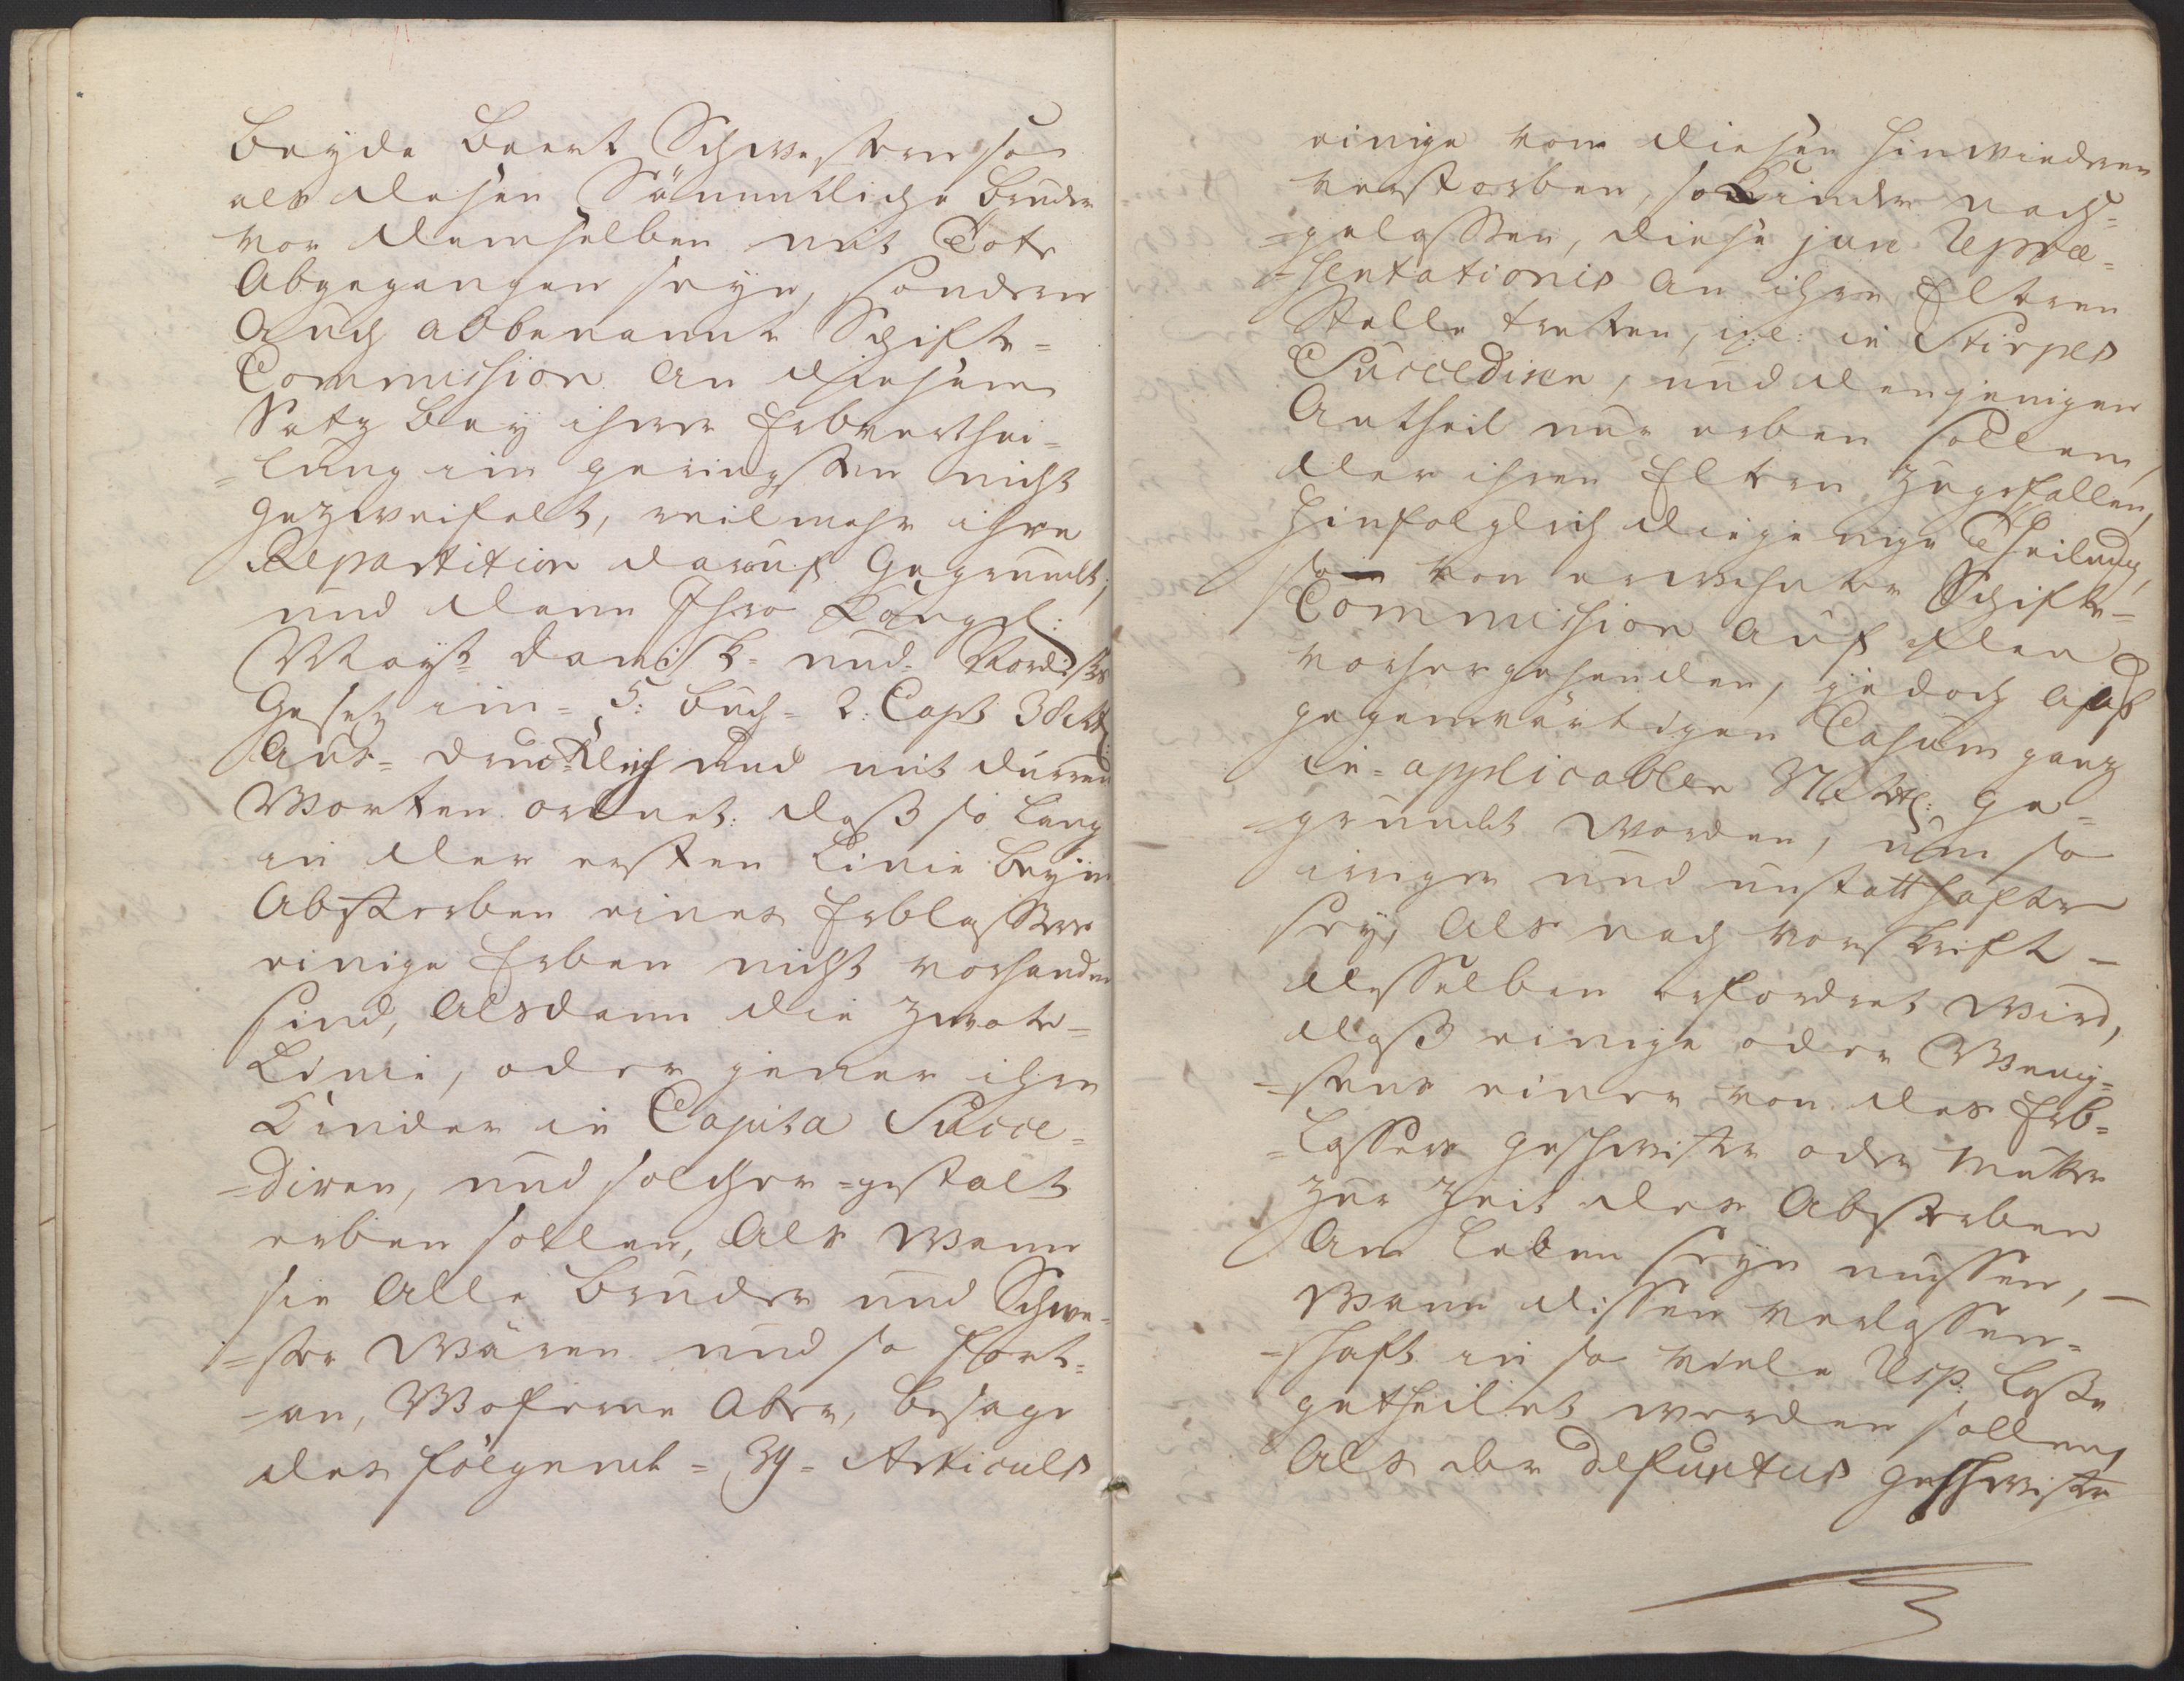 beyde Beert Schwestern so
als dessen Sämmtliche Brüder
vor demselben mit Tode
Abgegangen seyn, sondern
Auch obbenannte Schifts=
Commission an diesem
Satz bey ihrer Erbverthei=
=lung im geringsten nicht
gezweifelt, vielmehr ihre
Repartition darauf Gegrundt,
und dann Ihro Königl:
Mayt= Danisk= und Nordisks
Gesetz im= 5: Buch= 2: Capt 38 Art:
Aus= drucklich und mit durren
Worten ordnet: daß so lang
in der ersten Linie beym
Absterben eines Erblassers
einige Erben nicht vorhanden
sind, Alsdann die zwote=
Linie, oder jener ihre
Kinder in Capita Succe=
=diren, und solcher=gestalt
erben sollen, Als Wann
sie Alle Brüder und Schwe=
=ster Wären und so fort=
=an, Woferne Aber, besage
des folgend= 39= Articuls
einige von diesen hinwiedrum
verstorben, so Kinder nach=
=gelassen, diese jure Repræ=
=sentationis an ihrer Eltren
Stelle tretten, i:e: in Stirpes
Succediren, und denjenigen
Antheil nur erben sollen,
der ihren Eltren zugefallen,
hinfolglich diejenige Theilung,
so von erwehnter Schifts=
Commission auf den
vorhergehenden, jedoch auf
gegenwärtigen Casum ganz
in=applicablen 37 Art: ge=
grundt worden, um so
irriger und unstatthafter
sey, Als nach vorskrift=
desselben erfordret wird,
daß einige oder Wenig=
=stens einer von des Erb=
=lassers geschwister oder Mutter
zur Zeit des Absterben
Am Leben seyn mussen, –
Wann dessen verlassen=
=schaft in so viele Rsp: Losse
getheilet werden sollen,
Als der defunctus geschwister